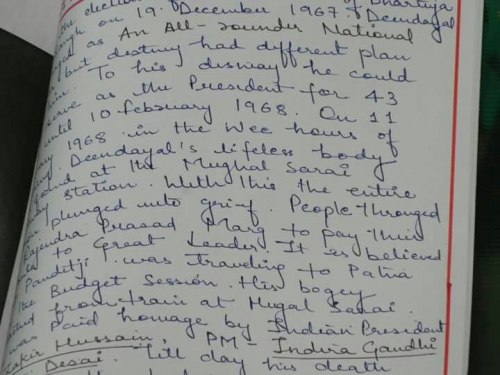 the election of Bhartiya
on 19 December 1967. Deendayal
as An All-rounder National
but destiny had different plan
in. To his dismay he could
serve as the President for 43
until 10 february 1968. On 11
1968 in the Wee hours of
Deendayal's lifeless body
found at the Mughal Sarai
station. With this the entire
plunged into grief. People thronged
Rajendra Prasad Marg to pay their
to Great Leader. It is believed
Panditji was traveling to Patna
the Budget Session. His bogey
from train at Mugal Sarai.
was Paid homage by Indian President
Zakir Hussain, PM - Indira Gandhi
Desai. Till day his death